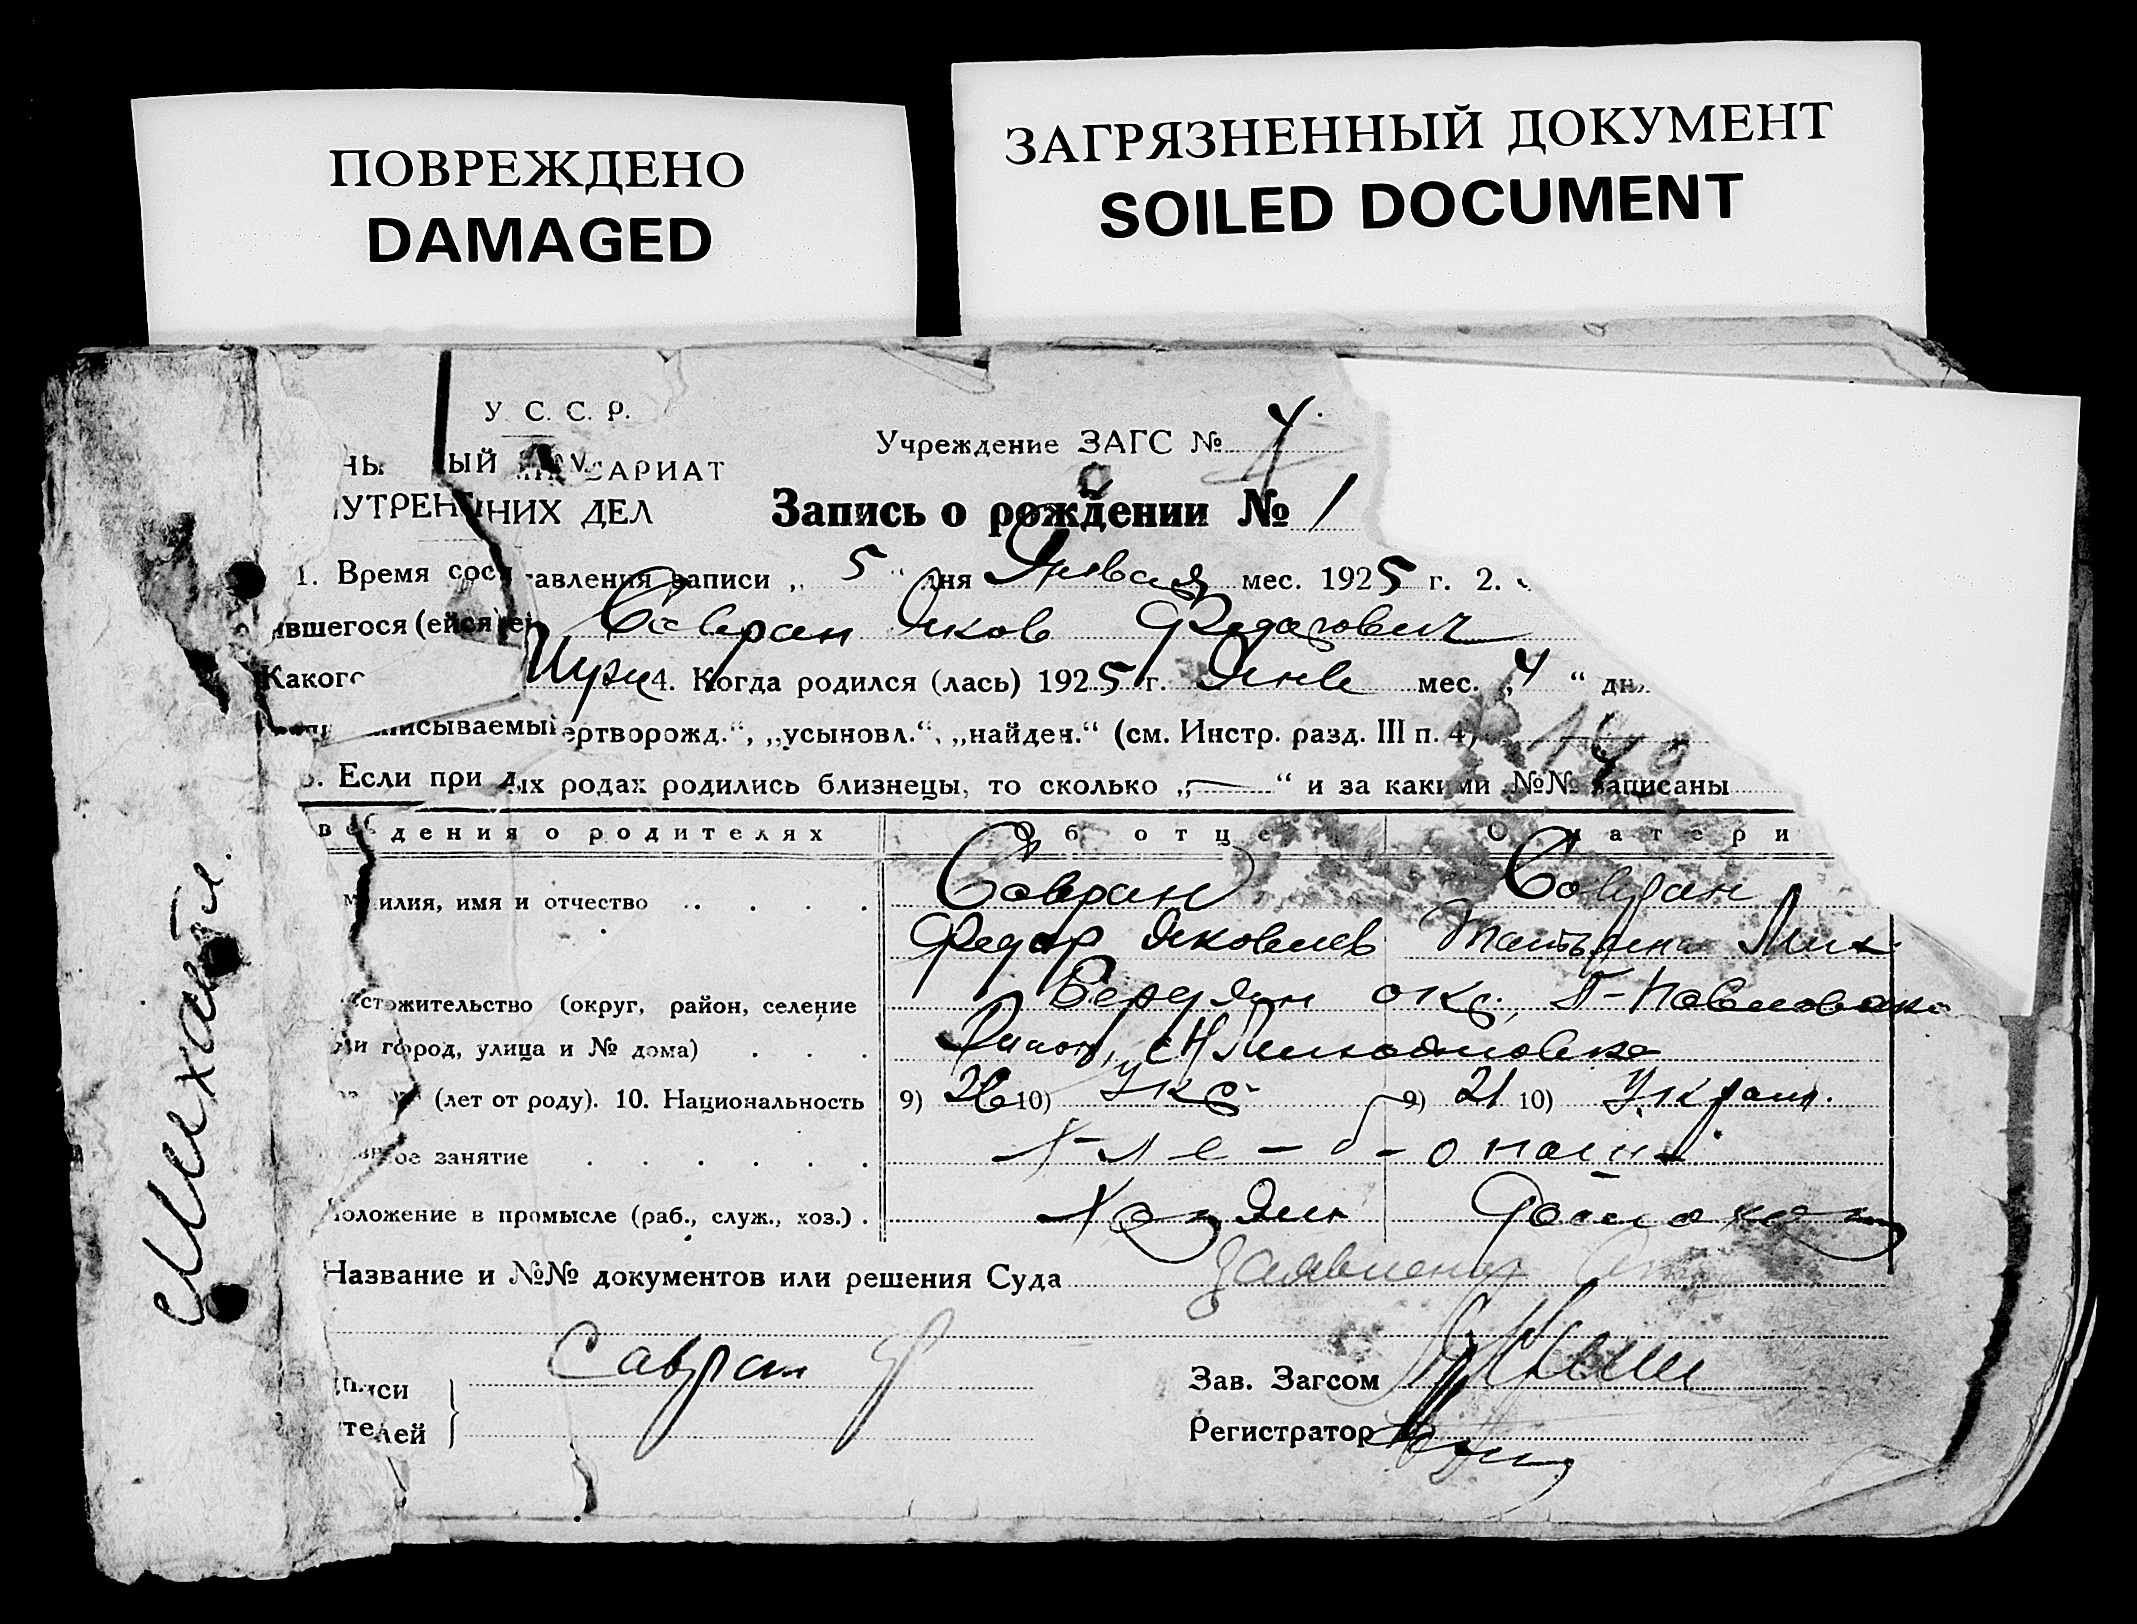 ПОВРЕЖДЕНО
DAMAGED
ЗАГРЯЗНЕННЫЙ ДОКУМЕНТ
SOILED DOCUMENT
У. С. С. Р.
Учреждение ЗАГС № 4
ЫЙ САРИАТ
УТРЕННИХ ДЕЛ
Запись о рождении № 1
1. Время составления записи „ 5 “ дня Января мес. 1925 г. 2.
ившегося (ейся) Савран Яков Федорович
Какого Муж 4. Когда родился (лась) 1925 г. Янв мес. „ 4 “ дн
исываемый ертворожд.“, „усыновл.“, „найден.“ (см. Инстр. разд. III п. 4)
Если при этих родах родились близнецы, то сколько „ — “ и за какими №№ записаны
ведения о родителях Об отце О матери
милия, имя и отчество Савран Савран
Федор Яковлев Татьяна Мих
стожительство (округ, район, селение Бердян окр., П-Павловско
и город, улица и № дома)
(лет от роду). 10. Национальность 9) 26 10) Укр 9) 21 10) Украин.
ое занятие Хле-б-опаш
положение в промысле (раб., служ., хоз.) Хозяин
Название и №№ документов или решения Суда Заявление
писи Савран
телей
Зав. Загсом
Регистратор